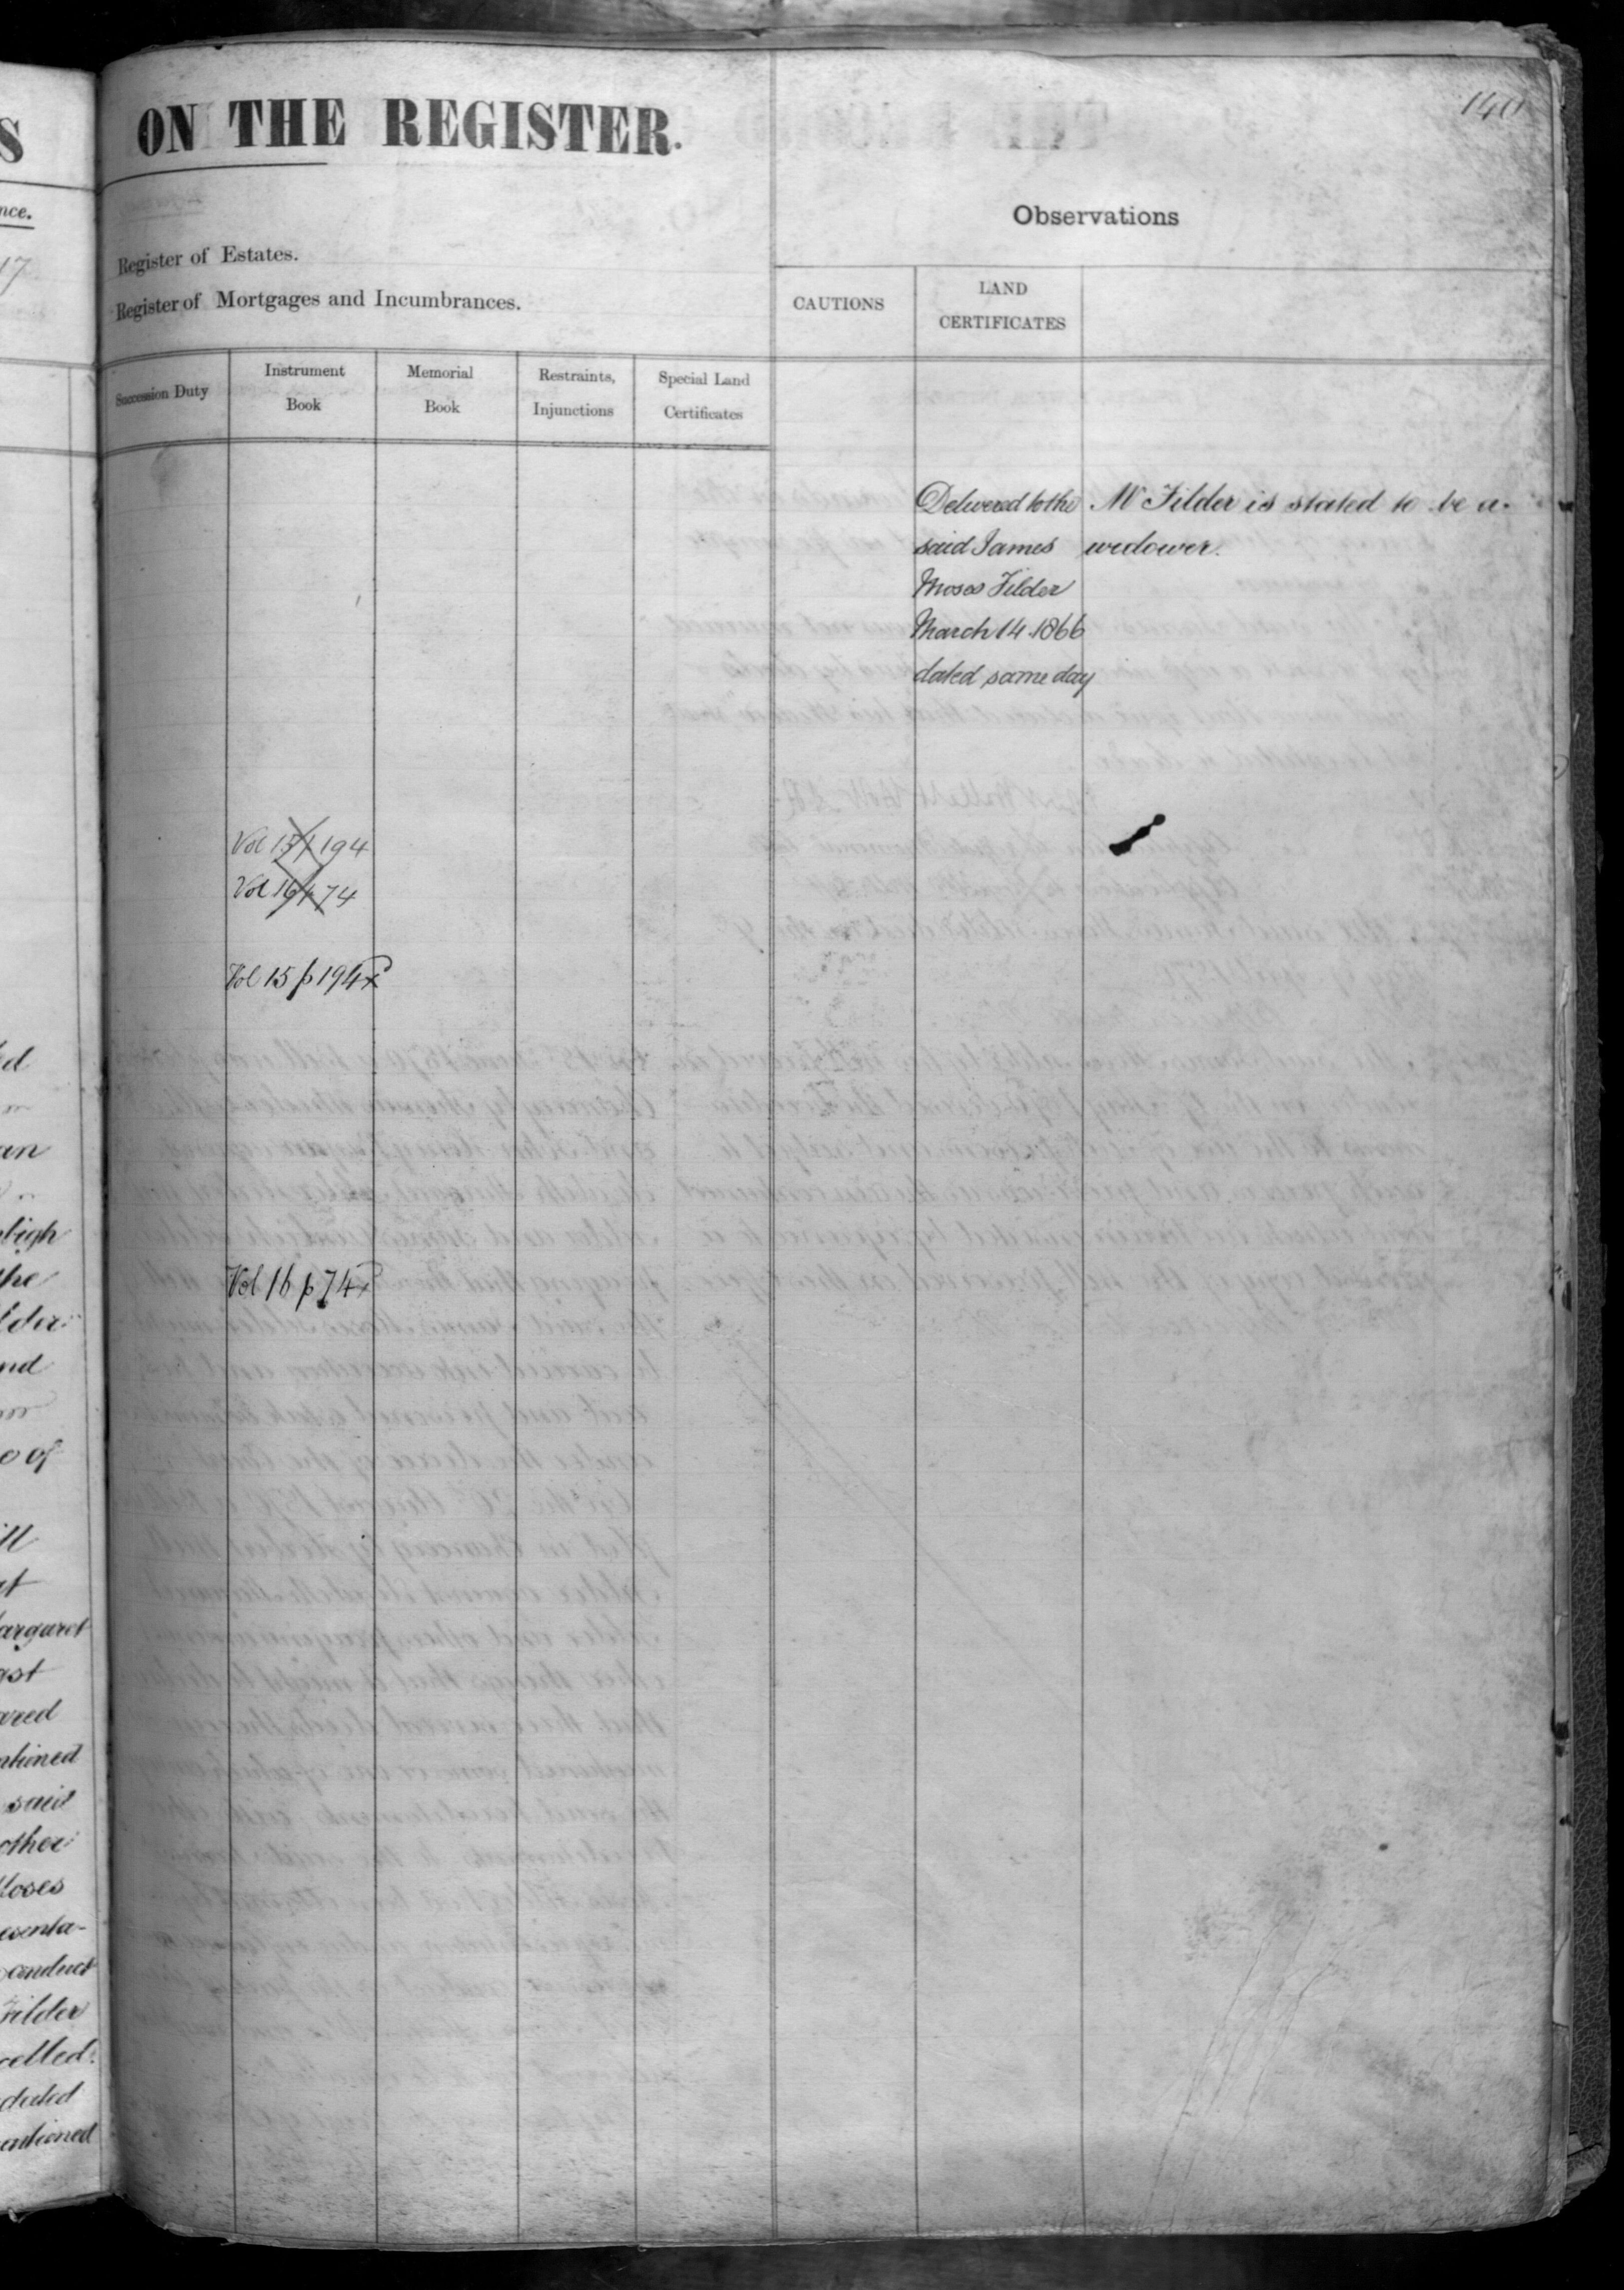 S
nce.
17
ed
an
bigh
the
lder
nd
o of
ill
at
argaret
ast
ared
ntioned
said
other
Moses
esenta-
conduct
Filder
celled.
dated
entioned
140
ON THE REGISTER.
Register of Estates.
Register of Mortgages and Incumbrances.
Succession Duty
Instrument
Book
Memorial
Book
Restraints,
Injunctions
Special Land
Certificates
Observations
CAUTIONS
LAND
CERTIFICATES
Delivered to the
said James
Moses Filder
March 14 1866
dated same day
Mr Filder is stated to be a
widower.
Vol 15 p 194
Vol 16 p 74
Vol 15 p 194
Vol 16 p 74